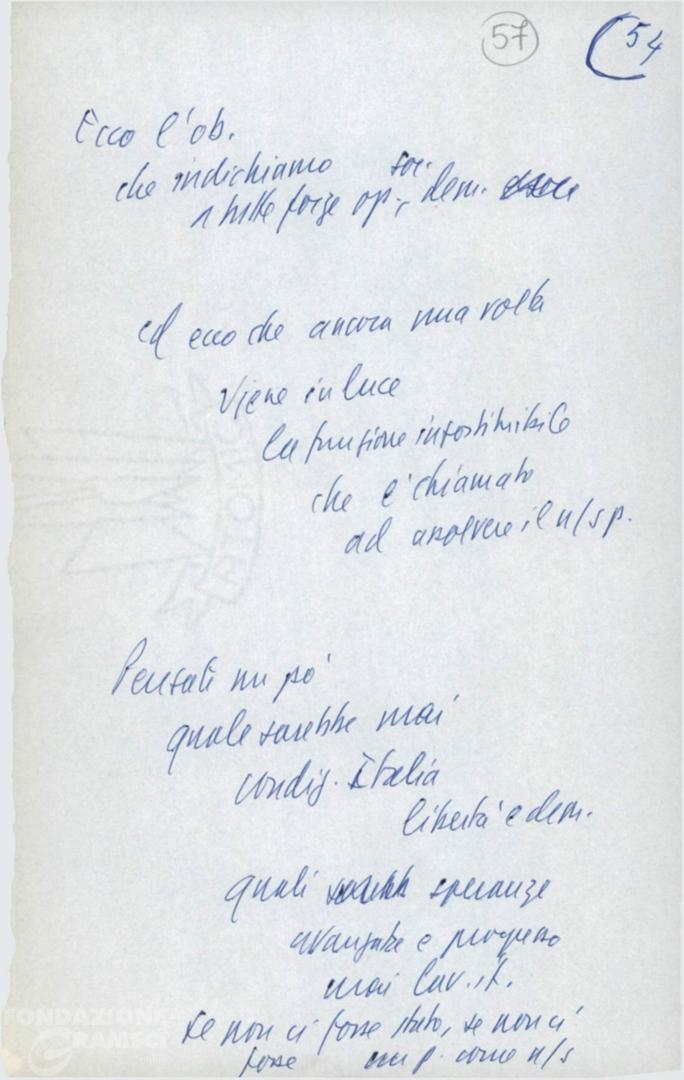 57
54
Ecco l'ob.
che indichiamo soc.
a tutte forze op., dem.
ed ecco che ancora una volta
viene in luce
la funzione insostituibile
che è chiamato
ad assolvere il n/s p.
Pensate un po'
quale sarebbe mai
condiz. Italia
libertà e dem.
quali speranze
avanzate e progresso
mai lav. it.
se non ci fosse stato, se non ci
fosse un p. come n/s
FONDAZIONE
GRAMSCI